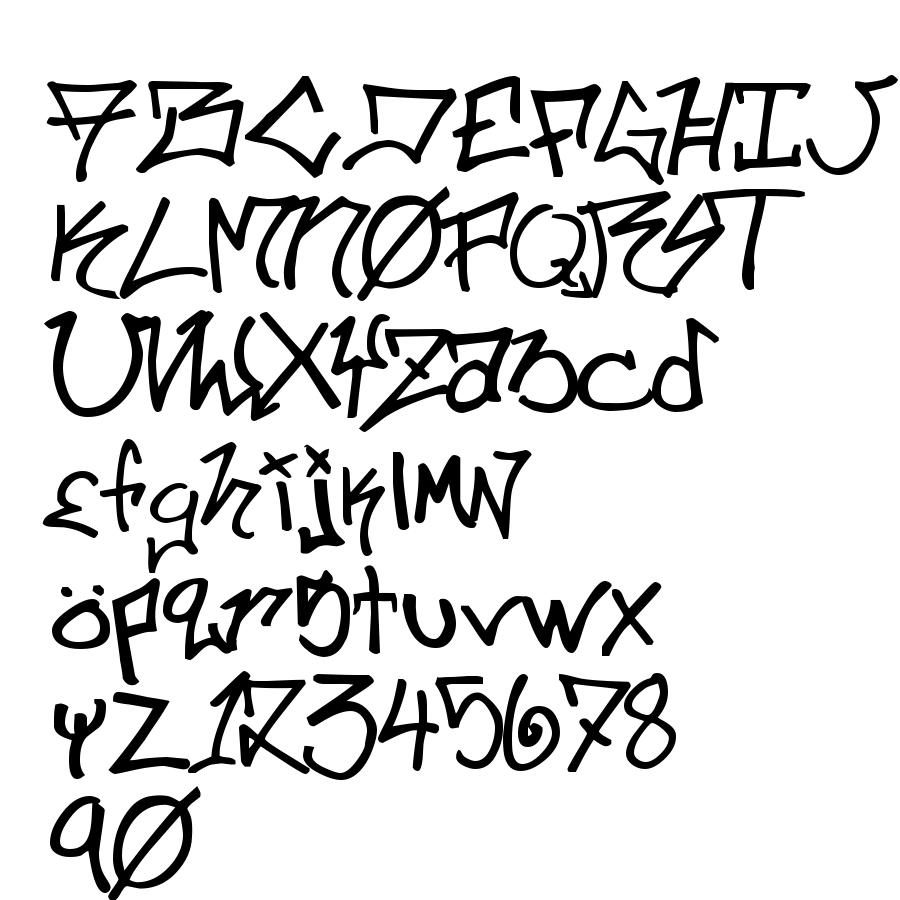 ABCDEFGHIJ
KLMNØPQRST
UVWXYZabcd
efghijklmn
öpqrstuvwx
yz12345678
9Ø